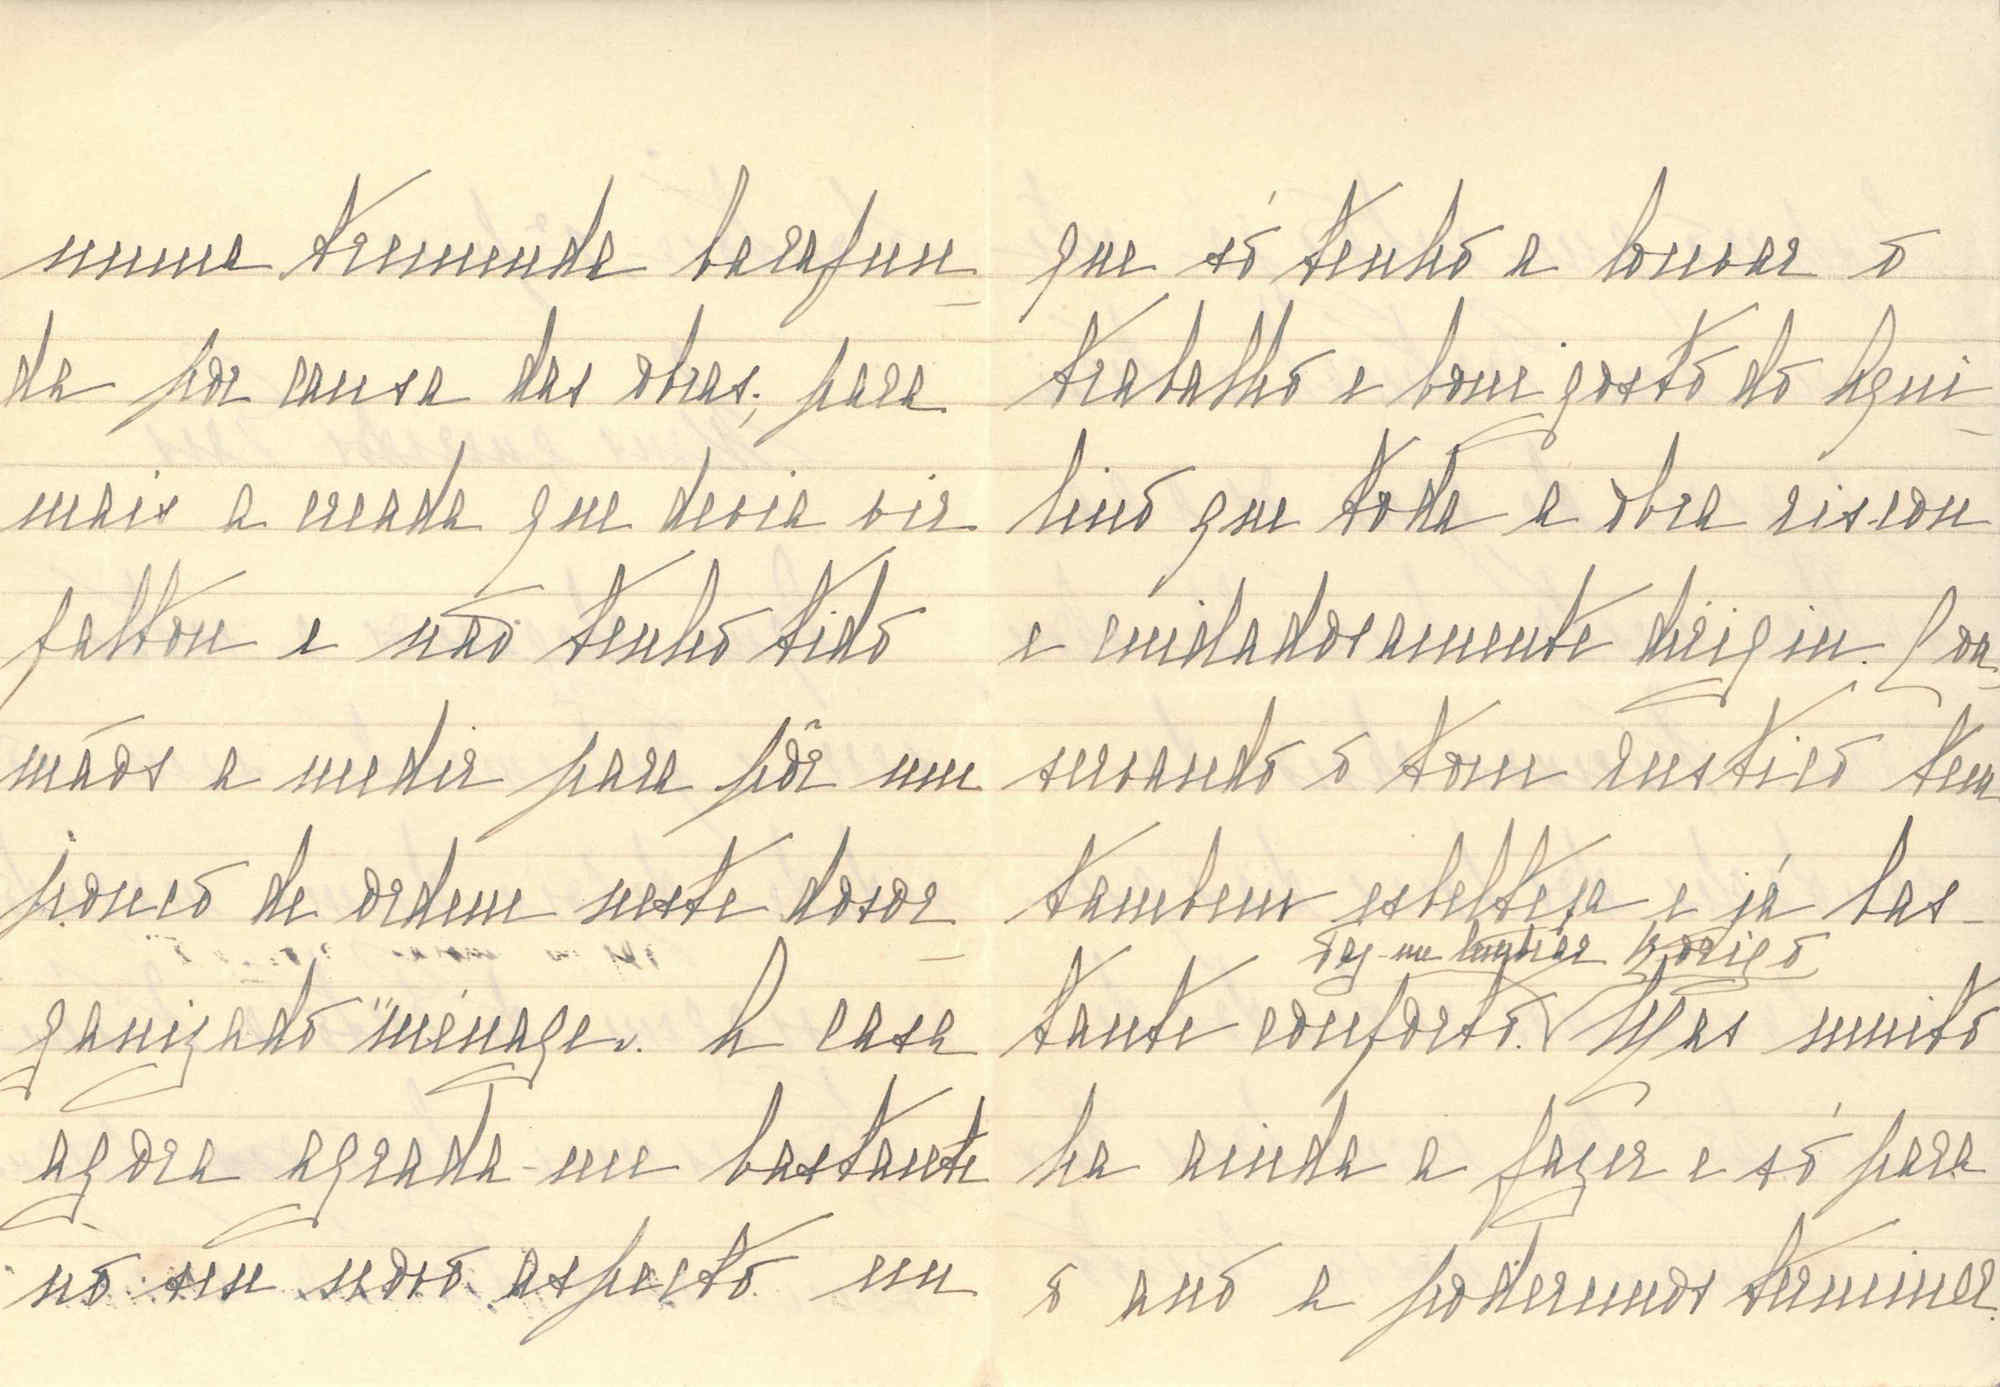 numa tremenda barafun-
da por causa das obras; para
mais a creada que devia vir
faltou e não tenho tido
mãos a medir para pôr um
pouco de ordem neste desor-
ganizado "ménage". A casa
agora agrada-me bastante
no seu novo aspecto em
que só tenho a louvar o
trabalho e bom gosto do Aqui-
lino que toda a obra riscou
e cuidadosamente dirigiu. Con-
servando o tom rustico tem
tambem esbelteza e já bas-
tante conforto. Mas muito
ha ainda a fazer e só para
o ano a poderemos terminar.